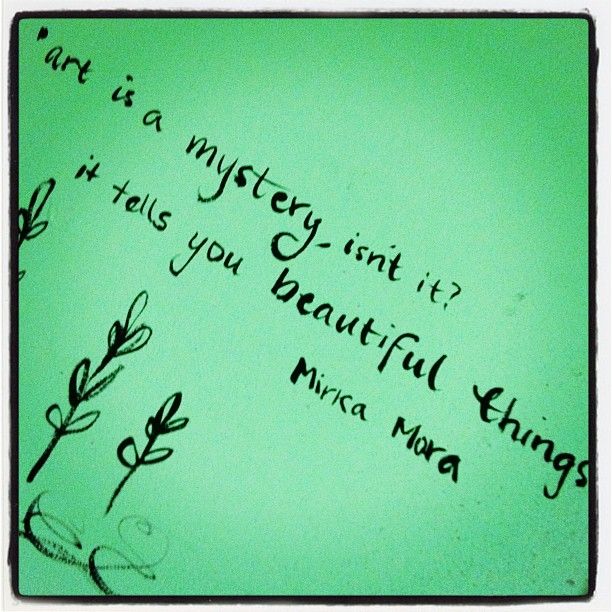 "art is a mystery isn't it?
it tells you beautiful things
Mirka Mora